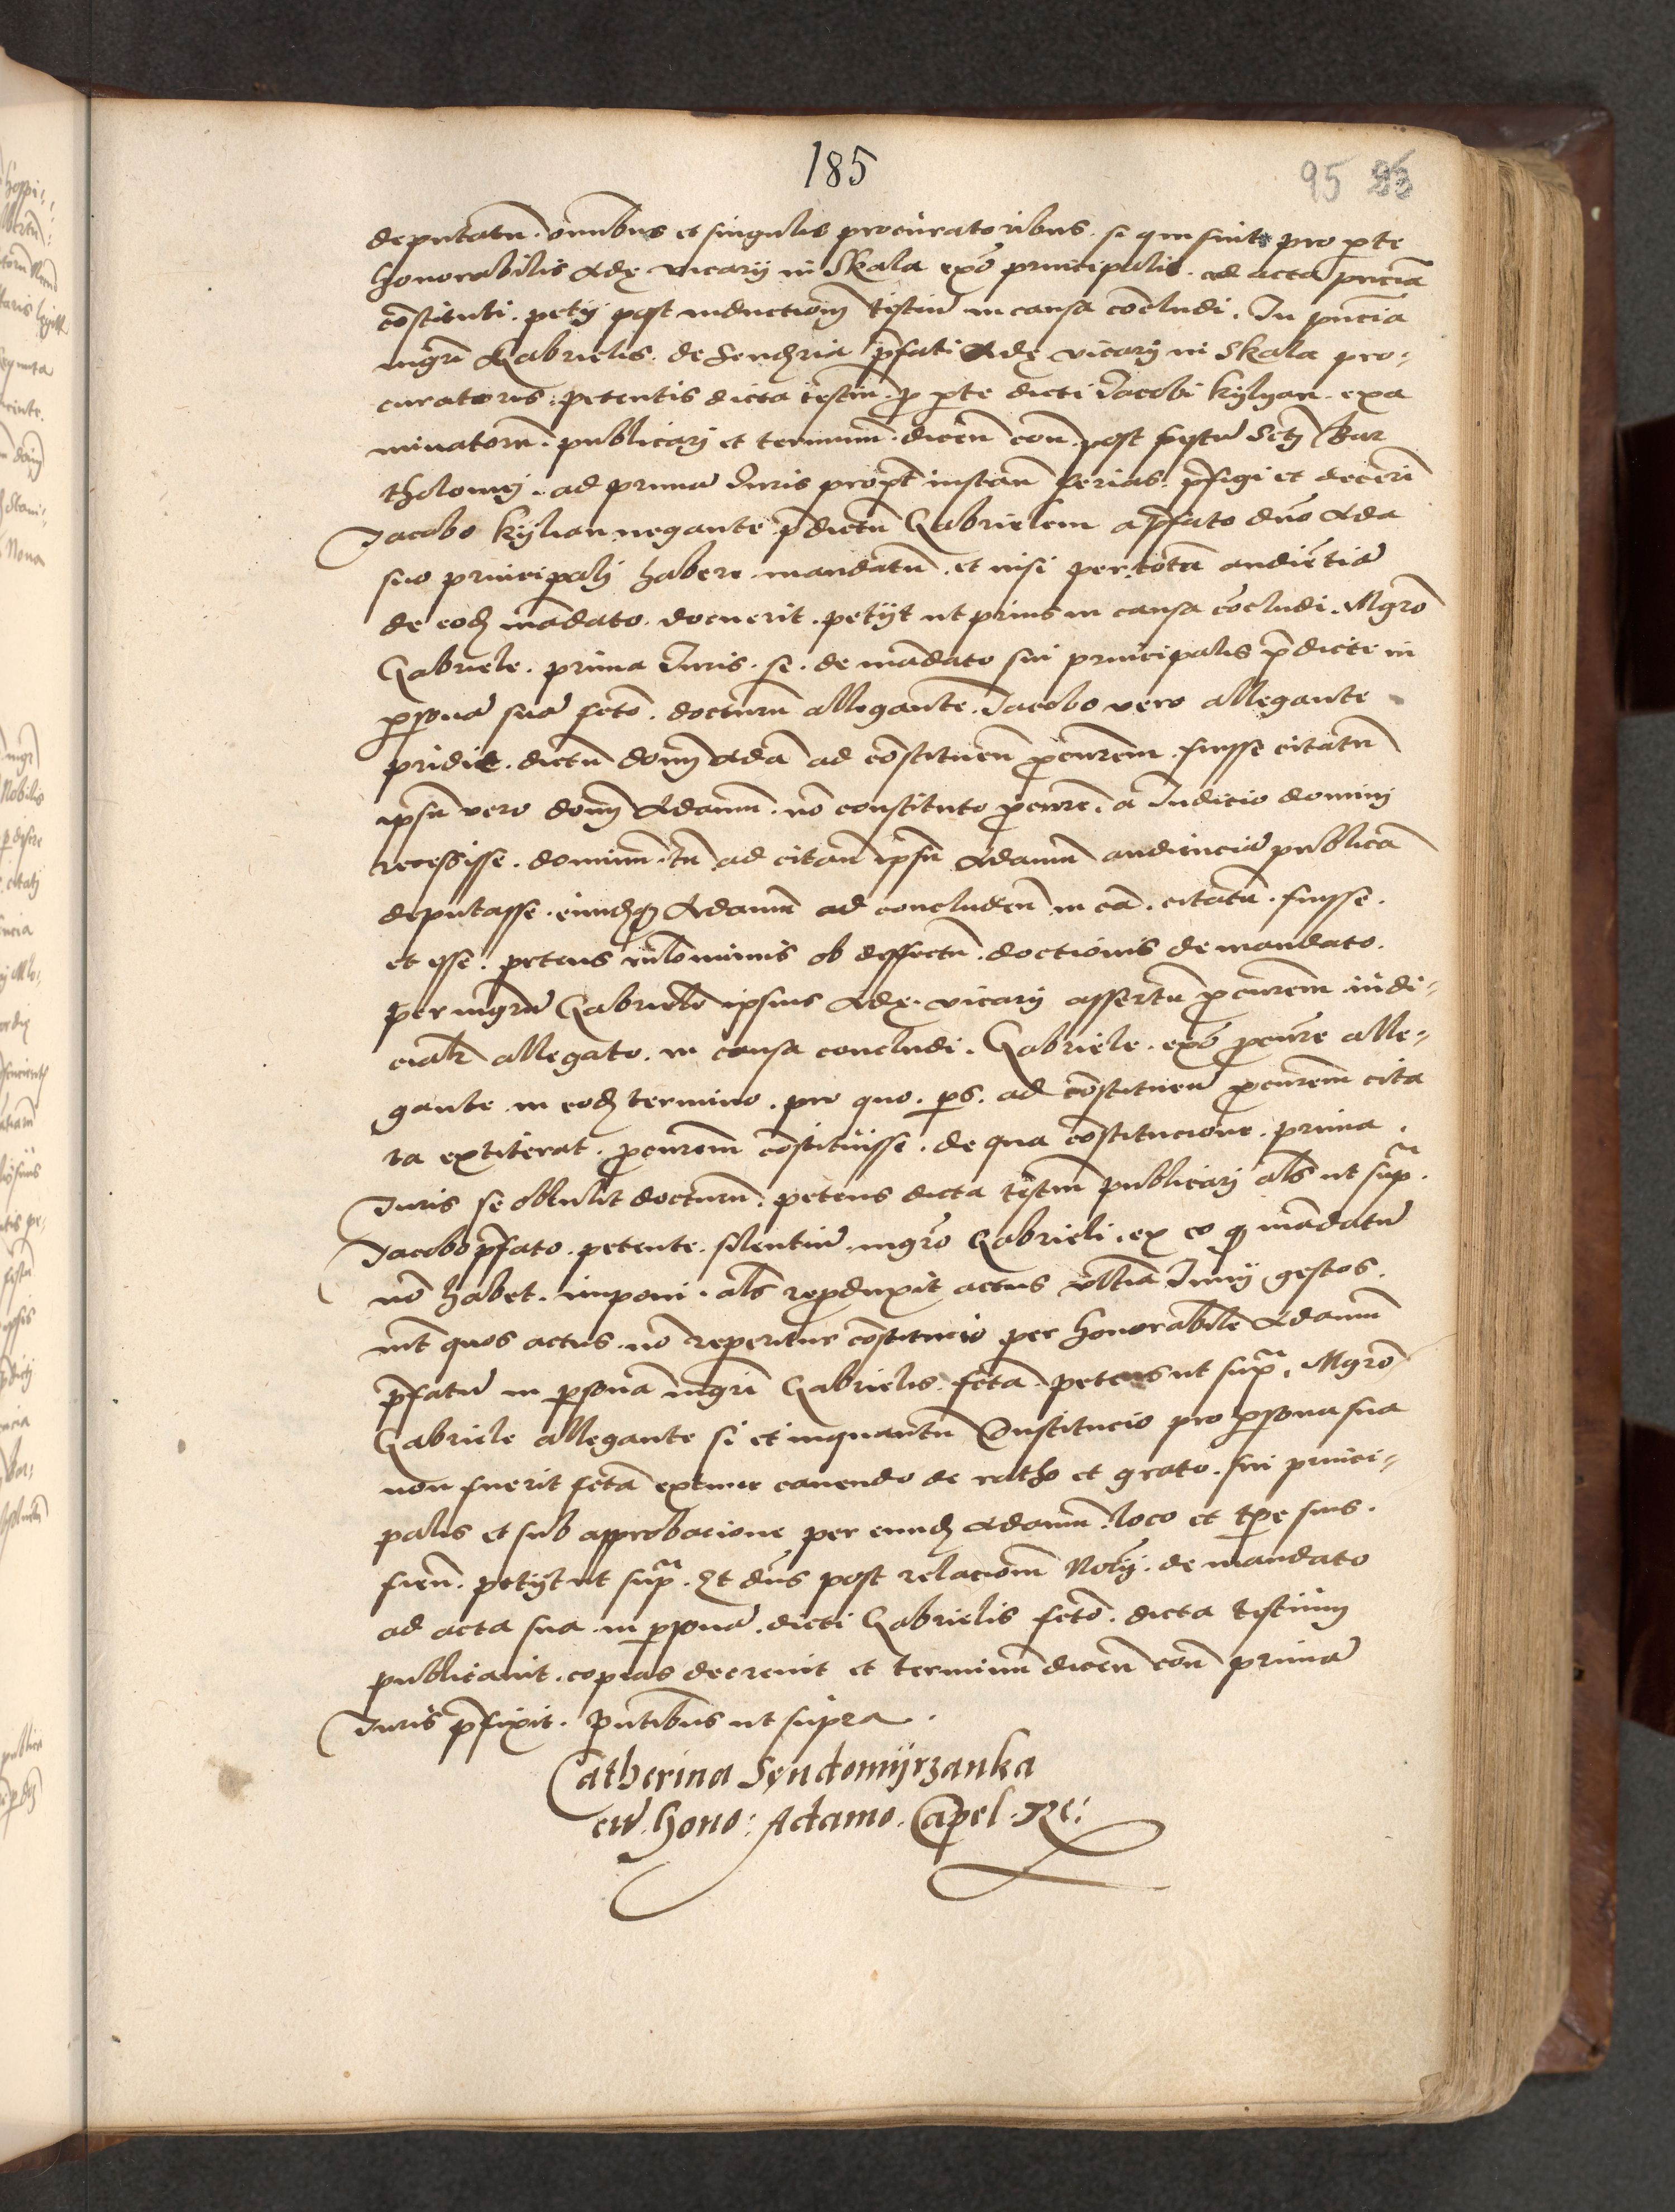 185
95
deputatu᷈. omnibus et singulis procuratoribus. si qui sint pro p̱te
honorabilis Adę vicarij in Skala ex᷈o principalis. ad acta pn᷈cia
co᷈stituti. petij post inductione᷈ testiu᷈ in causa co᷈cludi. In pn᷈cia
mgri᷈ Gabrielis. de Sendzria p᷈fati Adę vicarij in Skala pro-
curatoris. petentis dicta testiu᷈. p̱ p̱te dicti Jacobi Kylyan. exa
minatoru᷈. publicarj et terminu᷈. dicen᷈ con᷈. post festu᷈ Scti᷈ Bar
tholomej. ad prima᷈ Juris propt᷈ instan᷈ ferias. p᷈figi et decerni᷈
Jacobo Kylian negante p᷈dictu᷈ Gabrielem a p᷈fato dn᷈o Ada
suo principalj habere mandatu᷈. et nisi per tota᷈ audie᷈tia᷈
de eod᷈ ma᷈dato. docuerit. petijt ut prius in causa co᷈cludi. Mgro᷈
Gabriele. prima Juris. se. de ma᷈dato sui principalis p᷈dicte in
p̱sona᷈ sua᷈ fcto᷈. docturu᷈ allegante. Jacobo vero allegante
pridie. dictu᷈ domi᷈ Ada᷈ ad co᷈stituen᷈ p̱curem᷈. fuisse citatu᷈
ipsu᷈ vero domi᷈ Adamu᷈. no᷈ constituto p̱cure᷈. a Judicio dominj
recessisse. dominu᷈ tn᷈ ad citan᷈ ipsu᷈ Adamu᷈ audiencia᷈ publica᷈
deputasse. eundq᷈ Adamu᷈ ad concluden᷈ in ca᷈. citatu᷈. fuisse.
et esse. petens nilominus ob deffectu᷈. doctionis de mandato.
per mgru᷈ Gabriele᷈ ipsius Adę. vicarij assertu᷈ p̱curem᷈ iudi-
cialr᷈ allegato. in causa concludi. Gabriele. ex᷈o p̱cure᷈ alle-
gante in eod᷈ termino. pro quo. ps. ad co᷈stituen᷈ p̱curem᷈ cita
ta extiterat. p̱curem᷈ co᷈stituisse. de qua co᷈stitucione. prima.
Juris se obtulit docturu᷈. petens dicta testiu᷈ publicarj als᷈ ut sup᷈.
Jacobo p᷈fato. petente. silentiu᷈ mgro᷈ Gabrieli. ex eo q᷈ ma᷈datu᷈
no᷈ habet. imponi. als᷈ reproduxit actus ultia᷈ Junij gestos.
int᷈ quos actus. no᷈ reperitur co᷈stitucio per honorabile᷈ Adamu᷈
p᷈fatu᷈ in p̱sona᷈ mgri᷈ Gabrielis. fcta᷈. petens ut sup᷈. Mgro᷈
Gabriele allegante si et inquantu᷈ Constitucio pro p̱sona sua
non fuerit fcta᷈ extunc cauendo de ratho et grato. sui princi-
palis et sub approbacione per eund᷈ Adamu᷈. loco et tp̱e suis.
fien᷈. petijt ut sup᷈. Et dn᷈s post relacione᷈ Norij᷈. de mandato
ad acta sua in p̱sona᷈. dicti Gabrielis fcto᷈. dicta testium
publicauit. copias decreuit et terminu᷈ dicen᷈ con᷈ prima᷈
Juris p᷈fixit. pn᷈tibus ut supra.
Catherina Sendomijrzanka
cu᷈. hono: Adamo. Capel. Re: